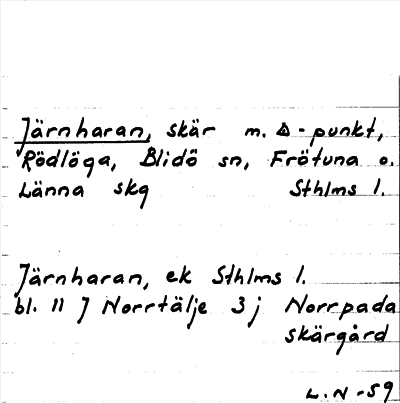 Järnharan, skär m. Δ-punkt,
Rödlöga, Blidö sn, Frötuna o.
Länna skg Sthlms l.
Järnharan, ek Sthlms l.
bl. 11 J Norrtälje 3 j Norrpada
skärgård
L.N -59